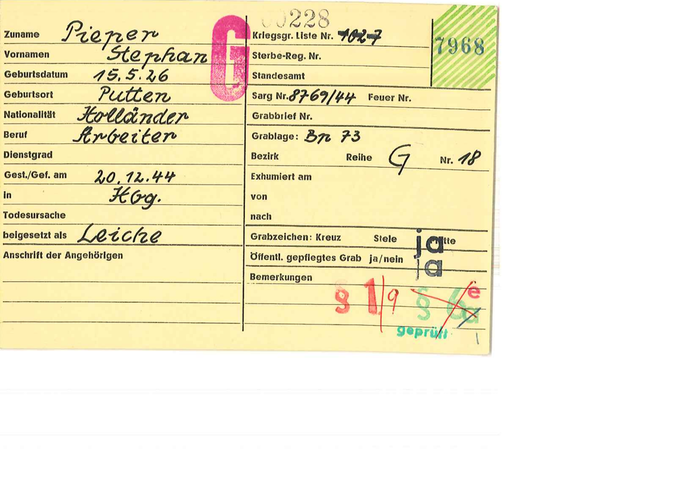 Zuname Pieper
Vornamen Stephan
Geburtsdatum 15.5.26
Geburtsort Putten
Nationalität Holländer
Beruf Arbeiter
Dienstgrad
Gest./Gef. am 20.12.44
in Hbg.
Todesursache
beigesetzt als Leiche
Anschrift der Angehörigen
G
228
Kriegsgr. Liste Nr. 1027
7968
Sterbe-Reg. Nr.
Standesamt
Sarg Nr. 8769/44 Feuer Nr.
Grabbrief Nr.
Grablage: Bp 73
Bezirk Reihe G Nr. 18
Exhumiert am
von
nach
Grabzeichen: Kreuz Stele ja
Öffentl. gepflegtes Grab ja/nein ja
Bemerkungen
§ 1/9 § 6a e
geprüft